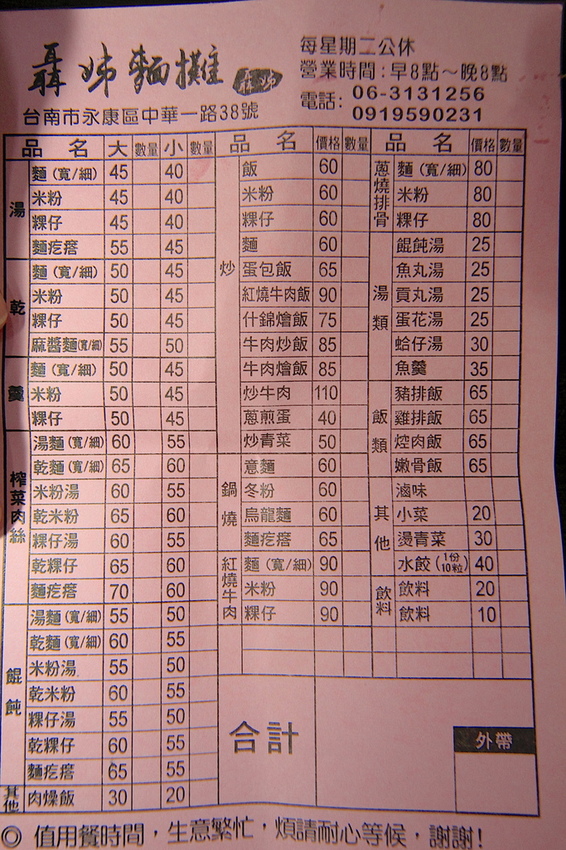 聶姊麵攤 聶姊
每星期二公休
營業時間:早8點～晚8點
電話: 06-3131256
0919590231
台南市永康區中華一路38號
品 名 大 數量 小 數量
湯
麵(寬/細) 45 40
米粉 45 40
粿仔 45 40
麵疙瘩 55 45
乾
麵(寬/細) 50 45
米粉 50 45
粿仔 50 45
麻醬麵(寬/細) 55 50
羹
麵(寬/細) 50 45
米粉 50 45
粿仔 50 45
榨菜肉絲
湯麵(寬/細) 60 55
乾麵(寬/細) 65 60
米粉湯 60 55
乾米粉 65 60
粿仔湯 60 55
乾粿仔 65 60
麵疙瘩 70 60
餛飩
湯麵(寬/細) 55 50
乾麵(寬/細) 60 55
米粉湯 55 50
乾米粉 60 55
粿仔湯 55 50
乾粿仔 60 55
麵疙瘩 65 55
其他
肉燥飯 30 20
品 名 價格 數量
炒
飯 60
米粉 60
粿仔 60
麵 60
蛋包飯 65
紅燒牛肉飯 90
什錦燴飯 75
牛肉炒飯 85
牛肉燴飯 85
炒牛肉 110
蔥煎蛋 40
炒青菜 50
鍋燒
意麵 60
冬粉 60
烏龍麵 60
麵疙瘩 65
紅燒牛肉
麵(寬/細) 90
米粉 90
粿仔 90
品 名 價格 數量
蔥燒排骨
麵(寬/細) 80
米粉 80
粿仔 80
湯類
餛飩湯 25
魚丸湯 25
貢丸湯 25
蛋花湯 25
蛤仔湯 30
魚羹 35
飯類
豬排飯 65
雞排飯 65
焢肉飯 65
嫩骨飯 65
其他
滷味
小菜 20
燙青菜 30
水餃(1份10粒) 40
飲料
飲料 20
飲料 10
合計
外帶
◎ 值用餐時間，生意繁忙，煩請耐心等候，謝謝!